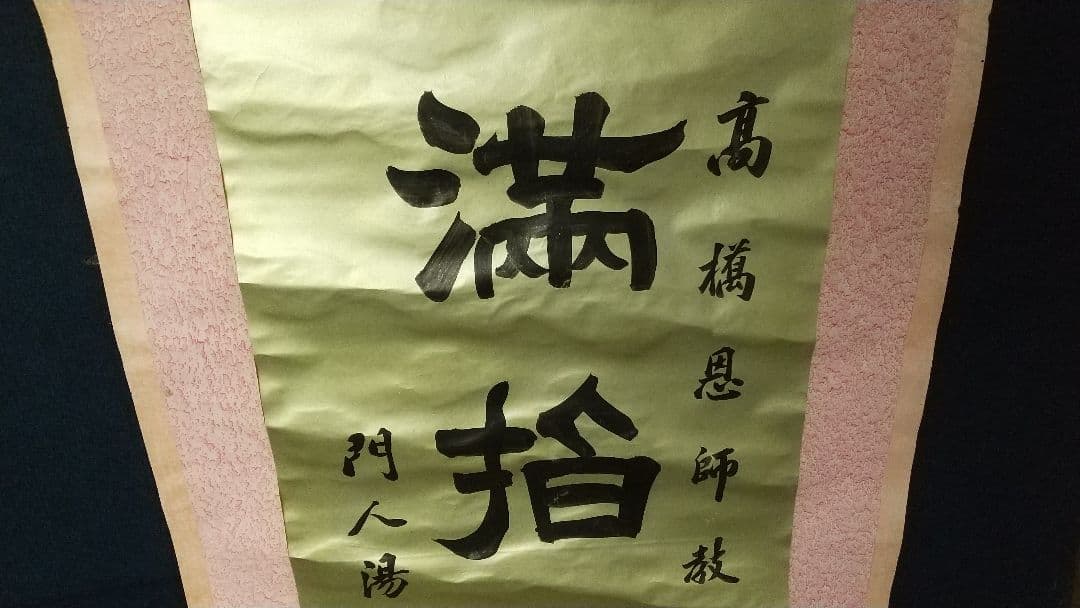 高橋恩師教
滿指
門人湯